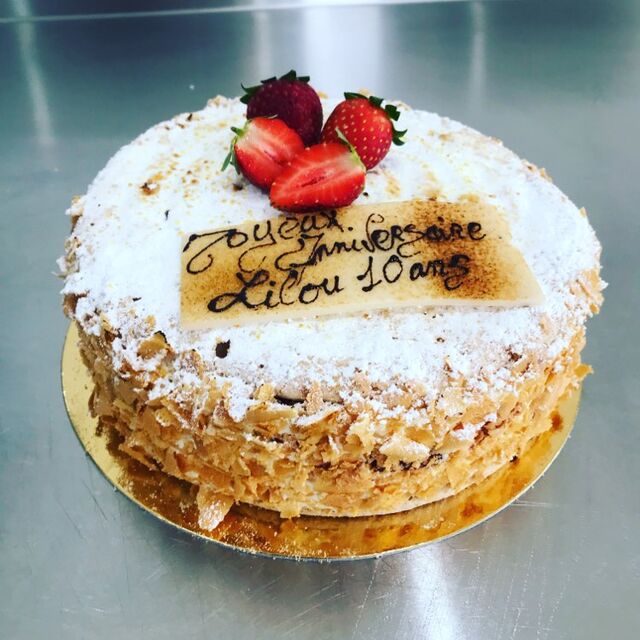 Joyeux
Anniversaire
Lilou 10 ans